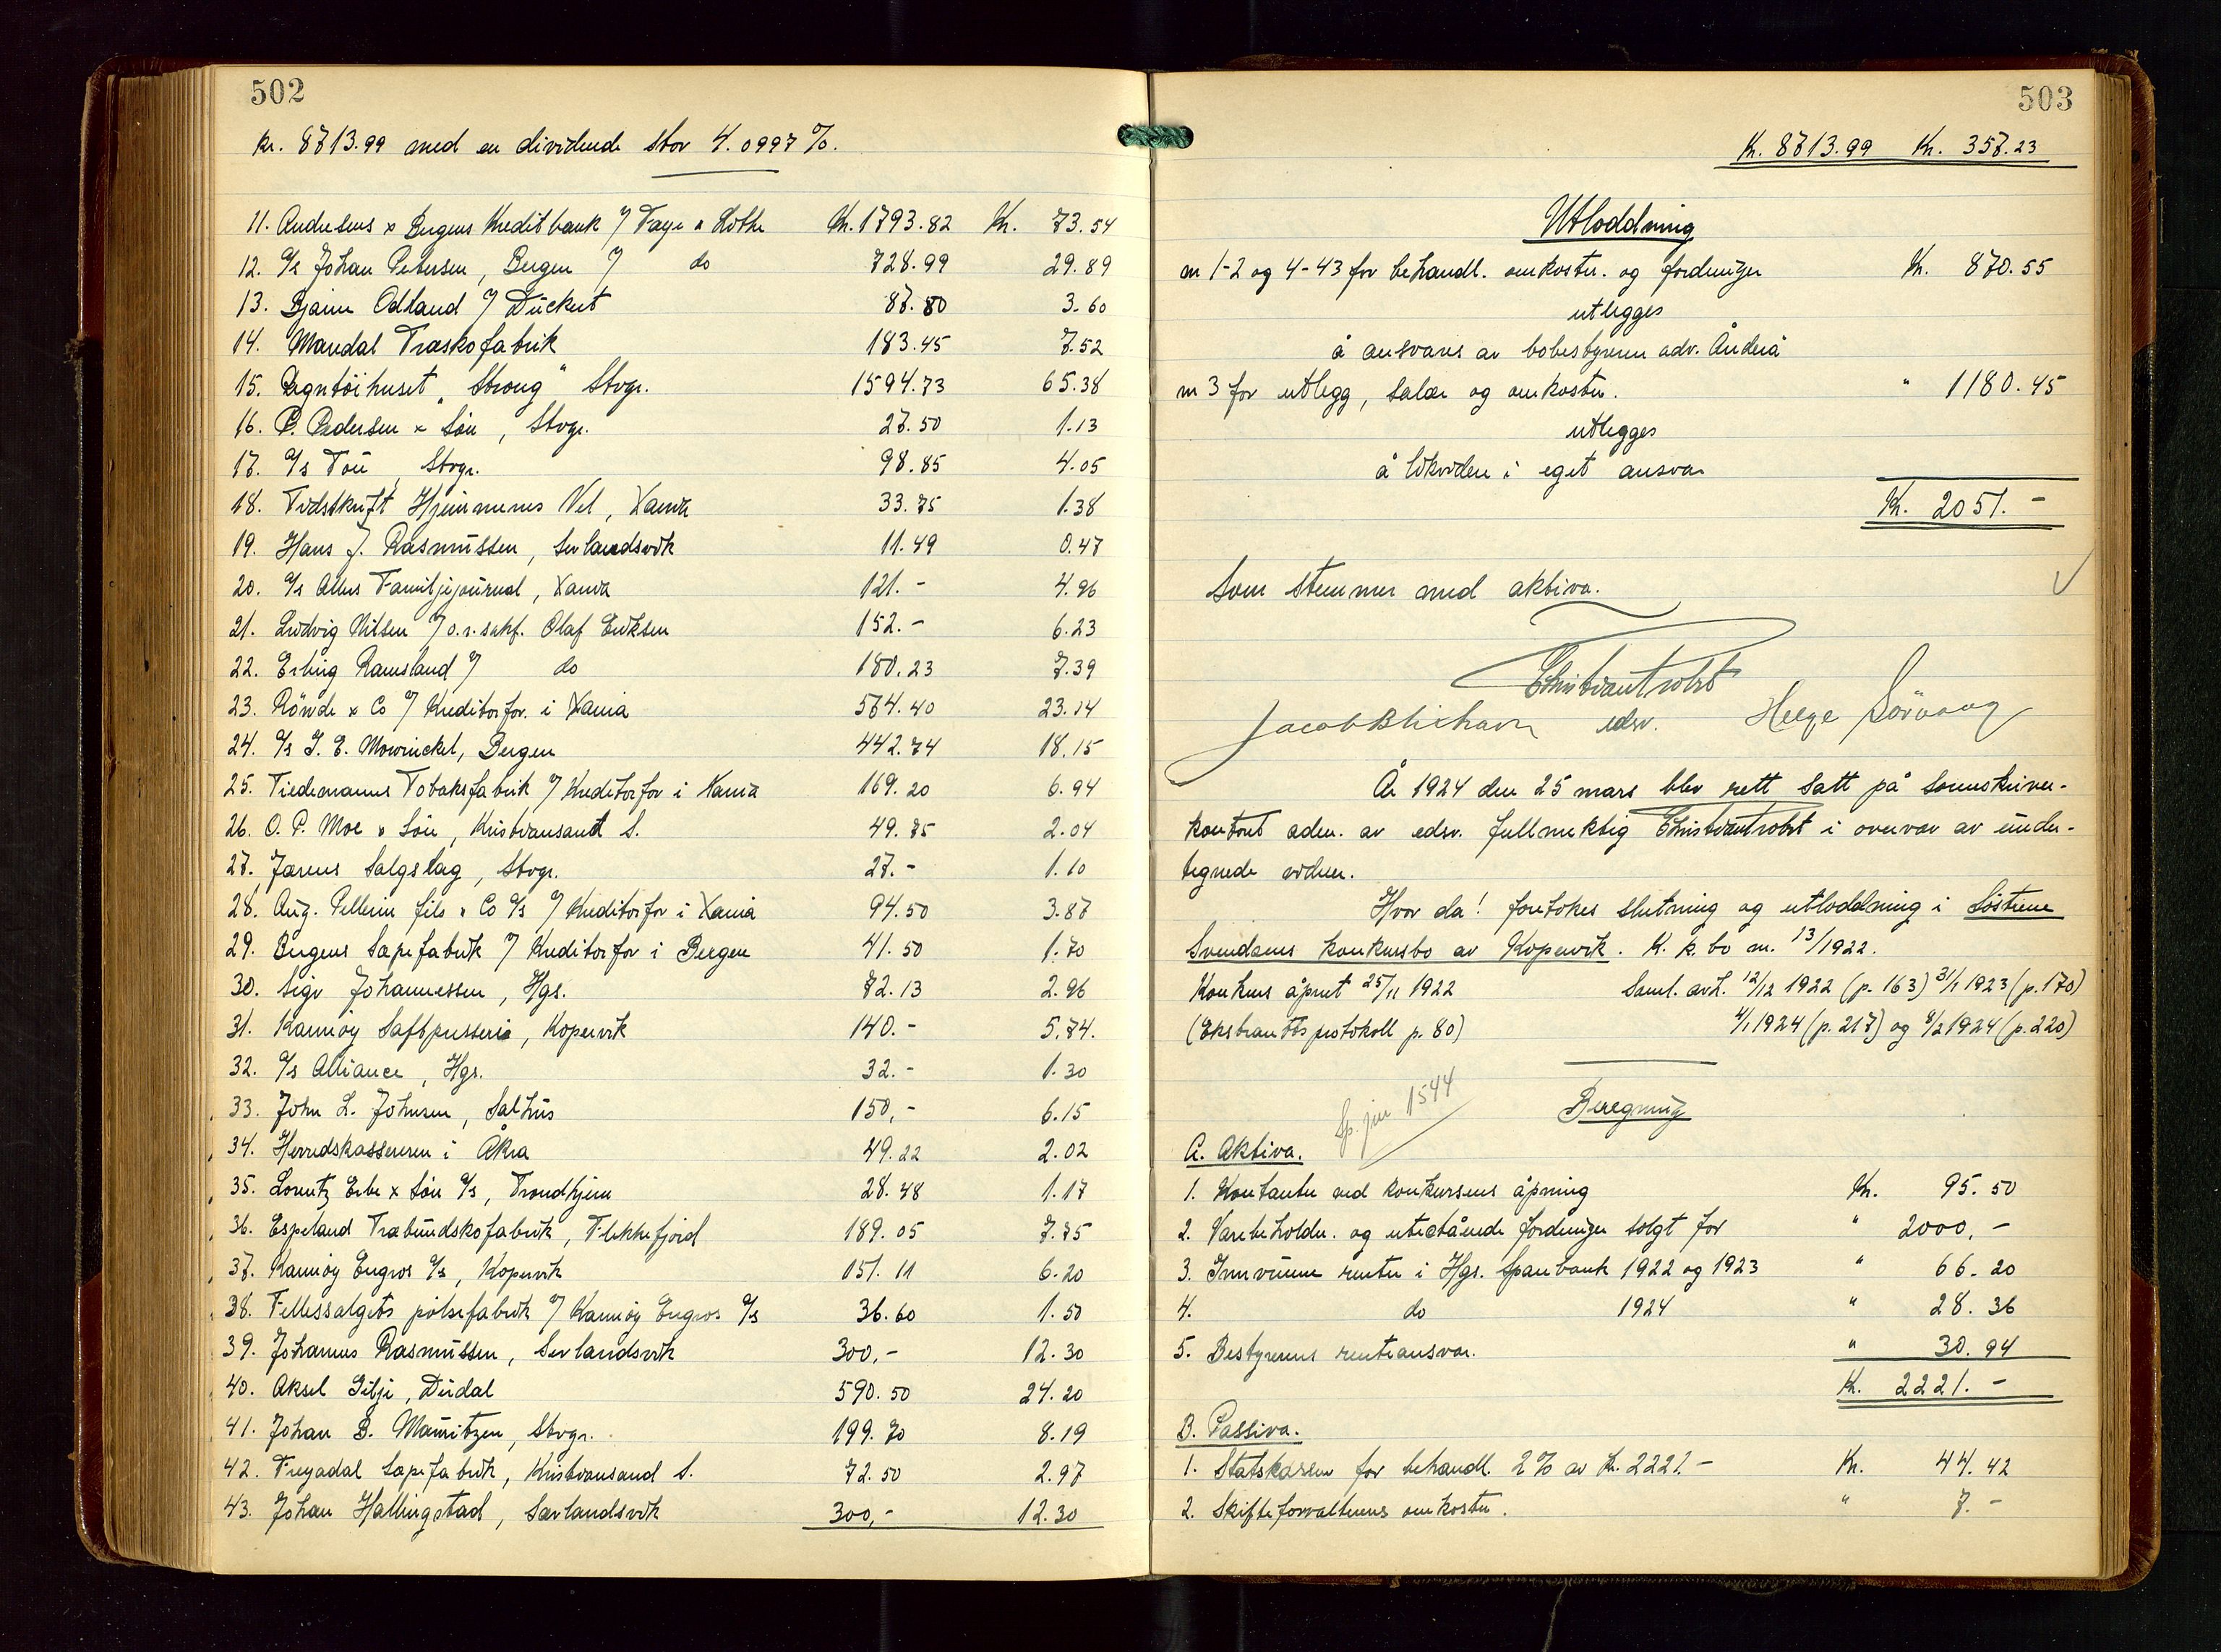 502
kr. 8713.99 med en dividende stor 4.0997 %.
11. Andresens & Bergens Kreditbank v/ Faye & Lothe Kr. 1793.82 Kr. 73.54
12. A/s Johan Petersen, Bergen v/ do 728.99 29.89
13. Bjarne Odland v/ Dückert 87.80 3.60
14. Mandal Træskofabrik 183.45 7.52
15. Regntöihuset "Strong" Stvgr. 1594.73 65.38
16. P. Pedersen & Sön, Stvgr. 27.50 1.13
17. A/s Tou, Stvgr. 98.85 4.05
18. Tidsskrift Hjemmenes Vel, Xania 33.75 1.38
19. Hans J. Rasmussen, Sevlandsvik 11.49 0.47
20. A/s Allers Familjejournal, Xania 121.- 4.96
21. Ludvig Nilsen v/ o.r.sakf. Olaf Eriksen 152.- 6.23
22. Erling Ramsland v/ do 180.23 7.39
23. Röwde & Co v/ Kreditorfor. i Xania 564.40 23.14
24. A/s J. E. Mowinckel, Bergen 442.74 18.15
25. Tiedemanns Tobaksfabrik v/ Kreditorfor i Xania 169.20 6.94
26. O. P. Moe & Sön, Kristiansand S. 49.75 2.04
27. Jærens Salgslag, Stvgr. 27.- 1.10
28. Aug. Pellerin fils & Co A/s v/ Kreditorfor i Xania 94.50 3.87
29. Bergens Sæpefabrik v/ Kreditorfor i Bergen 41.50 1.70
30. Sigv Johannessen, Hgs. 72.13 2.96
31. Karmöy Saftpresseri, Kopervik 140.- 5.74.
32. A/s Alliance, Hgs. 32.- 1.30
33. John L. Johnsen, Salhus 150,- 6.15
34. Herredskassereren i Åkra 49.22 2.02
35. Lorentz Erbe & Sön A/s, Trondhjem 28.48 1.17
36. Espeland Træbundskofabrik, Flekkefjord 189.05 7.75
37. Karmöy Engros A/s, Kopervik 151.11 6.20
38. Fellessalgets pölsefabrik v/ Karmöy Engros A/s 36.60 1.50
39. Johannes Rasmussen, Sevlandsvik 300,- 12.30
40. Aksel Gilje, Dirdal 590.50 24.20
41. Johan B. Mauritzen, Stvgr. 199.70 8.19
42. Freyadal Sæpefabrik, Kristiansand S. 72.50 2.97
43. Johan Hallingstad, Sævlandsvik 300,- 12.30
503
Kr. 8713.99 Kr. 357.23
Utloddning
nr 1-2 og 4-43 for behandl. omkostn. og fordringer Kr. 870.55
utlegges
å ansvares av bobestyreren adv. Åndeå
nr 3 for utlegg, salær og omkostn. " 1180.45
utlegges
å likvidere i eget ansvar
Kr. 2051.-
Som stemmer med aktiva.
Christian Trobst
Jacob Blichavn edsv. Helge Sörvaag
År 1924 den 25 mars blev rett satt på sorenskriver-
kontoret adm. av edsv. fullmektig Christian Trobst i overvær av under-
tegnede vidner.
Hvor da! foretokes slutning og utloddning i Söstrene
Svendsens konkursbo av Kopervik. K. k. bo nr. 13/1922.
Konkurs åpnet 25/11 1922 Saml. avh. 12/12 1922 (p. 163) 31/1 1923 (p. 170)
(Ekstrarettsprotokoll p. 80) 4/1 1924 (p. 217) og 8/2 1924 (p. 220)
Sp. jnr 1544
Beregning
A. Aktiva.
1. Kontanter ved konkursens åpning Kr. 95.50
2. Varebeholdn. og utestående fordringer solgt for " 2000,-
3. Innvunne renter i Hgs. Sparebank 1922 og 1923 " 66.20
4. do 1924 " 28.36
5. Bestyrerens renteansvar. " 30.94
Kr. 2221.-
B. Passiva.
1. Statskassen for behandl. 2 % av Kr. 2221.- Kr. 44.42
2. Skifteforvalterens omkostn. " 7.-